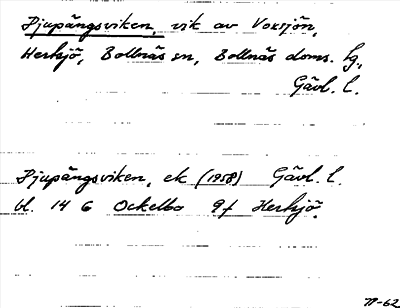 Djupängsviken, vik av Voxsjön,
Herkjö, Bollnäs sn, Bollnäs doms. lg.,
Gävl. l.
Djupängsviken, ek (1958) Gävl. l.
bl. 14 G Ockelbo 9f Herkjö.
77-62